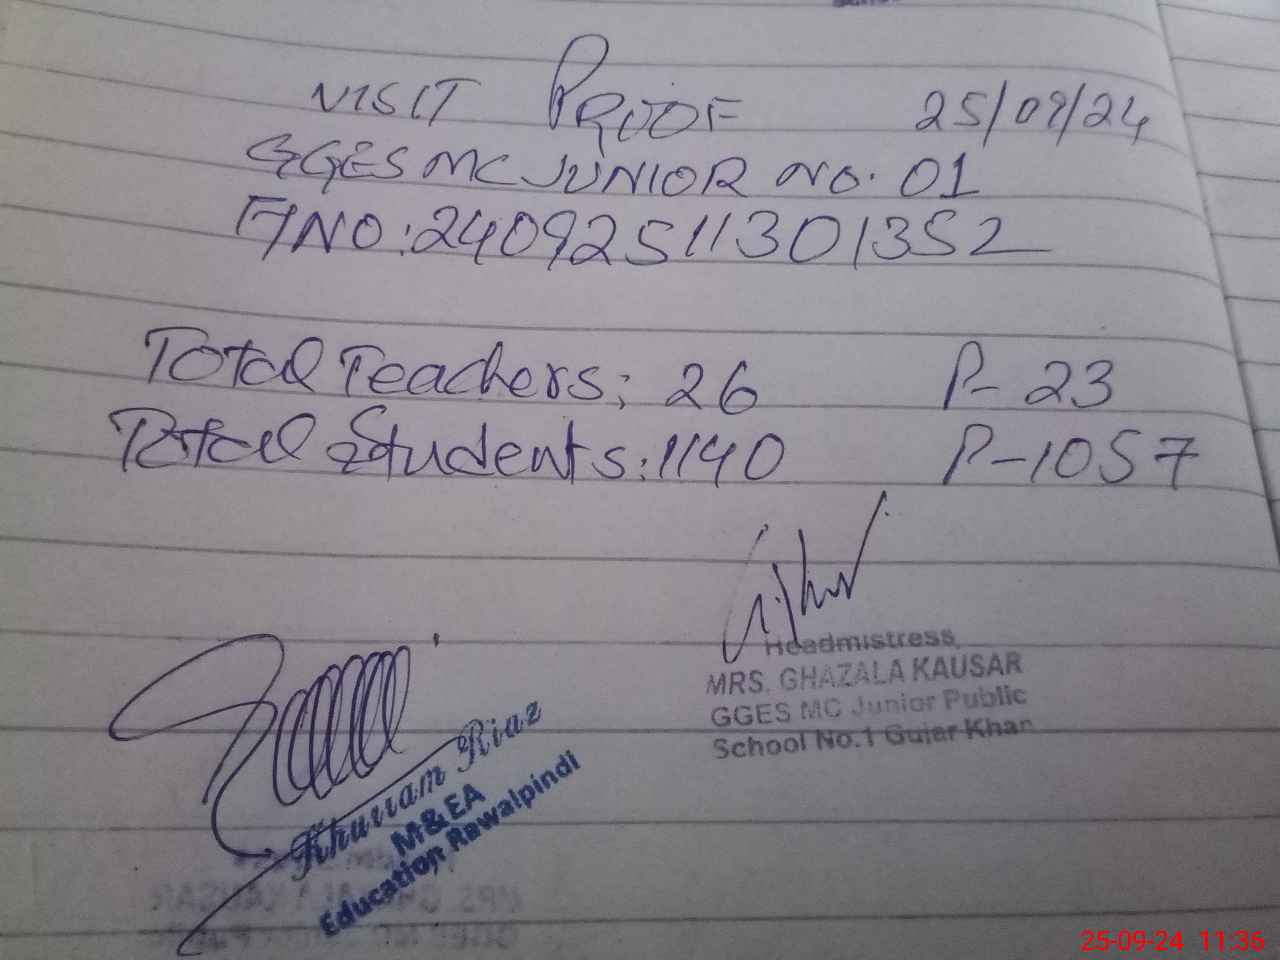 VISIT PROOF 25/09/24
GGES MC JUNIOR NO. 01
F/NO:24092511301352
Total Teachers: 26 P-23
Total Students:1140 P-1057
Headmistress
MRS. GHAZALA KAUSAR
GGES MC Junior Public
School No.1 Gujar Khan
Khurram Riaz
M&EA
Education, Rawalpindi
25-09-24 11:36